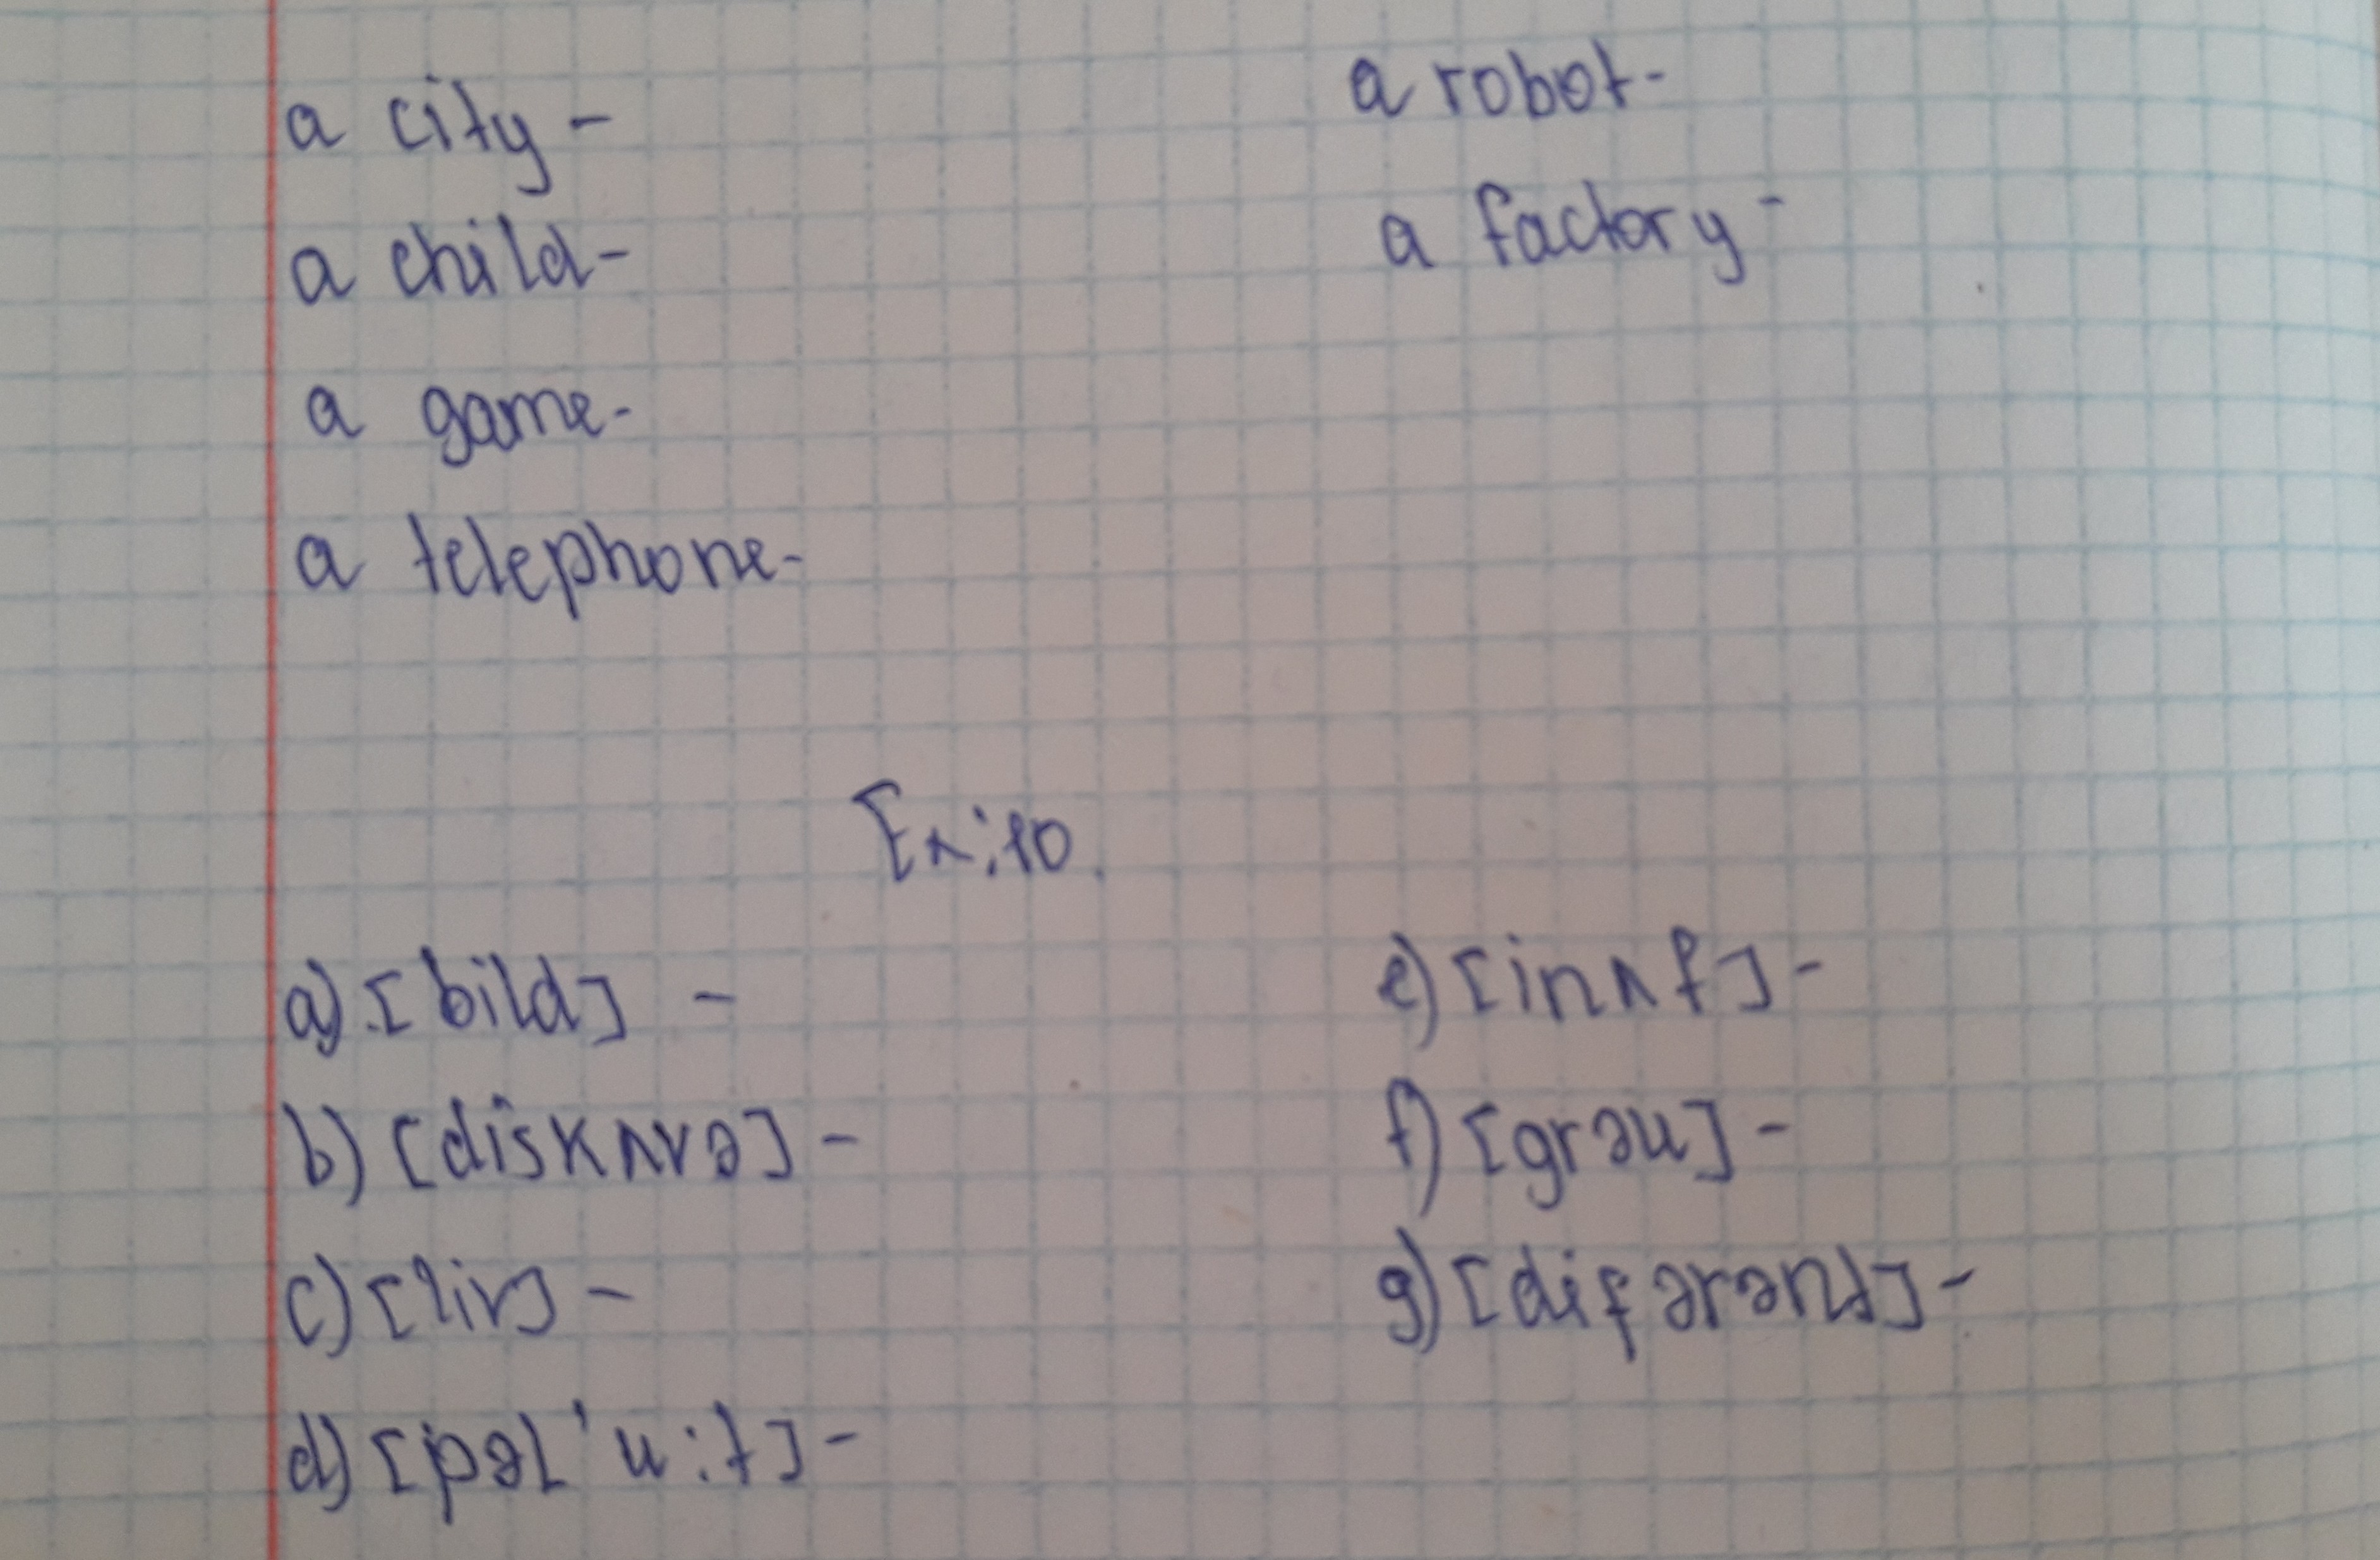 a city -
a child -
a game -
a telephone -
a robot -
a factory -
Ex: 10.
a) [bild] -
b) [diskʌvə] -
c) [liv] -
d) [pəl'u:t] -
e) [inʌf] -
f) [grəu] -
g) [difərənt] -